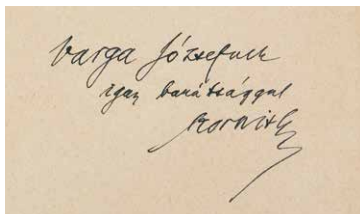 Varga Józsefnek
igaz barátsággal
Korniss